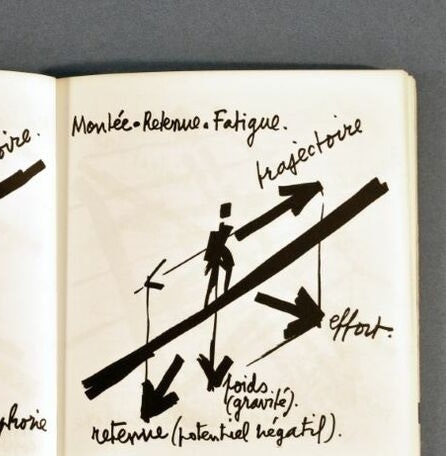 oire.
Montée • Retenue • Fatigue.
trajectoire
effort.
poids
(gravité).
phorie
retenue (potentiel négatif).